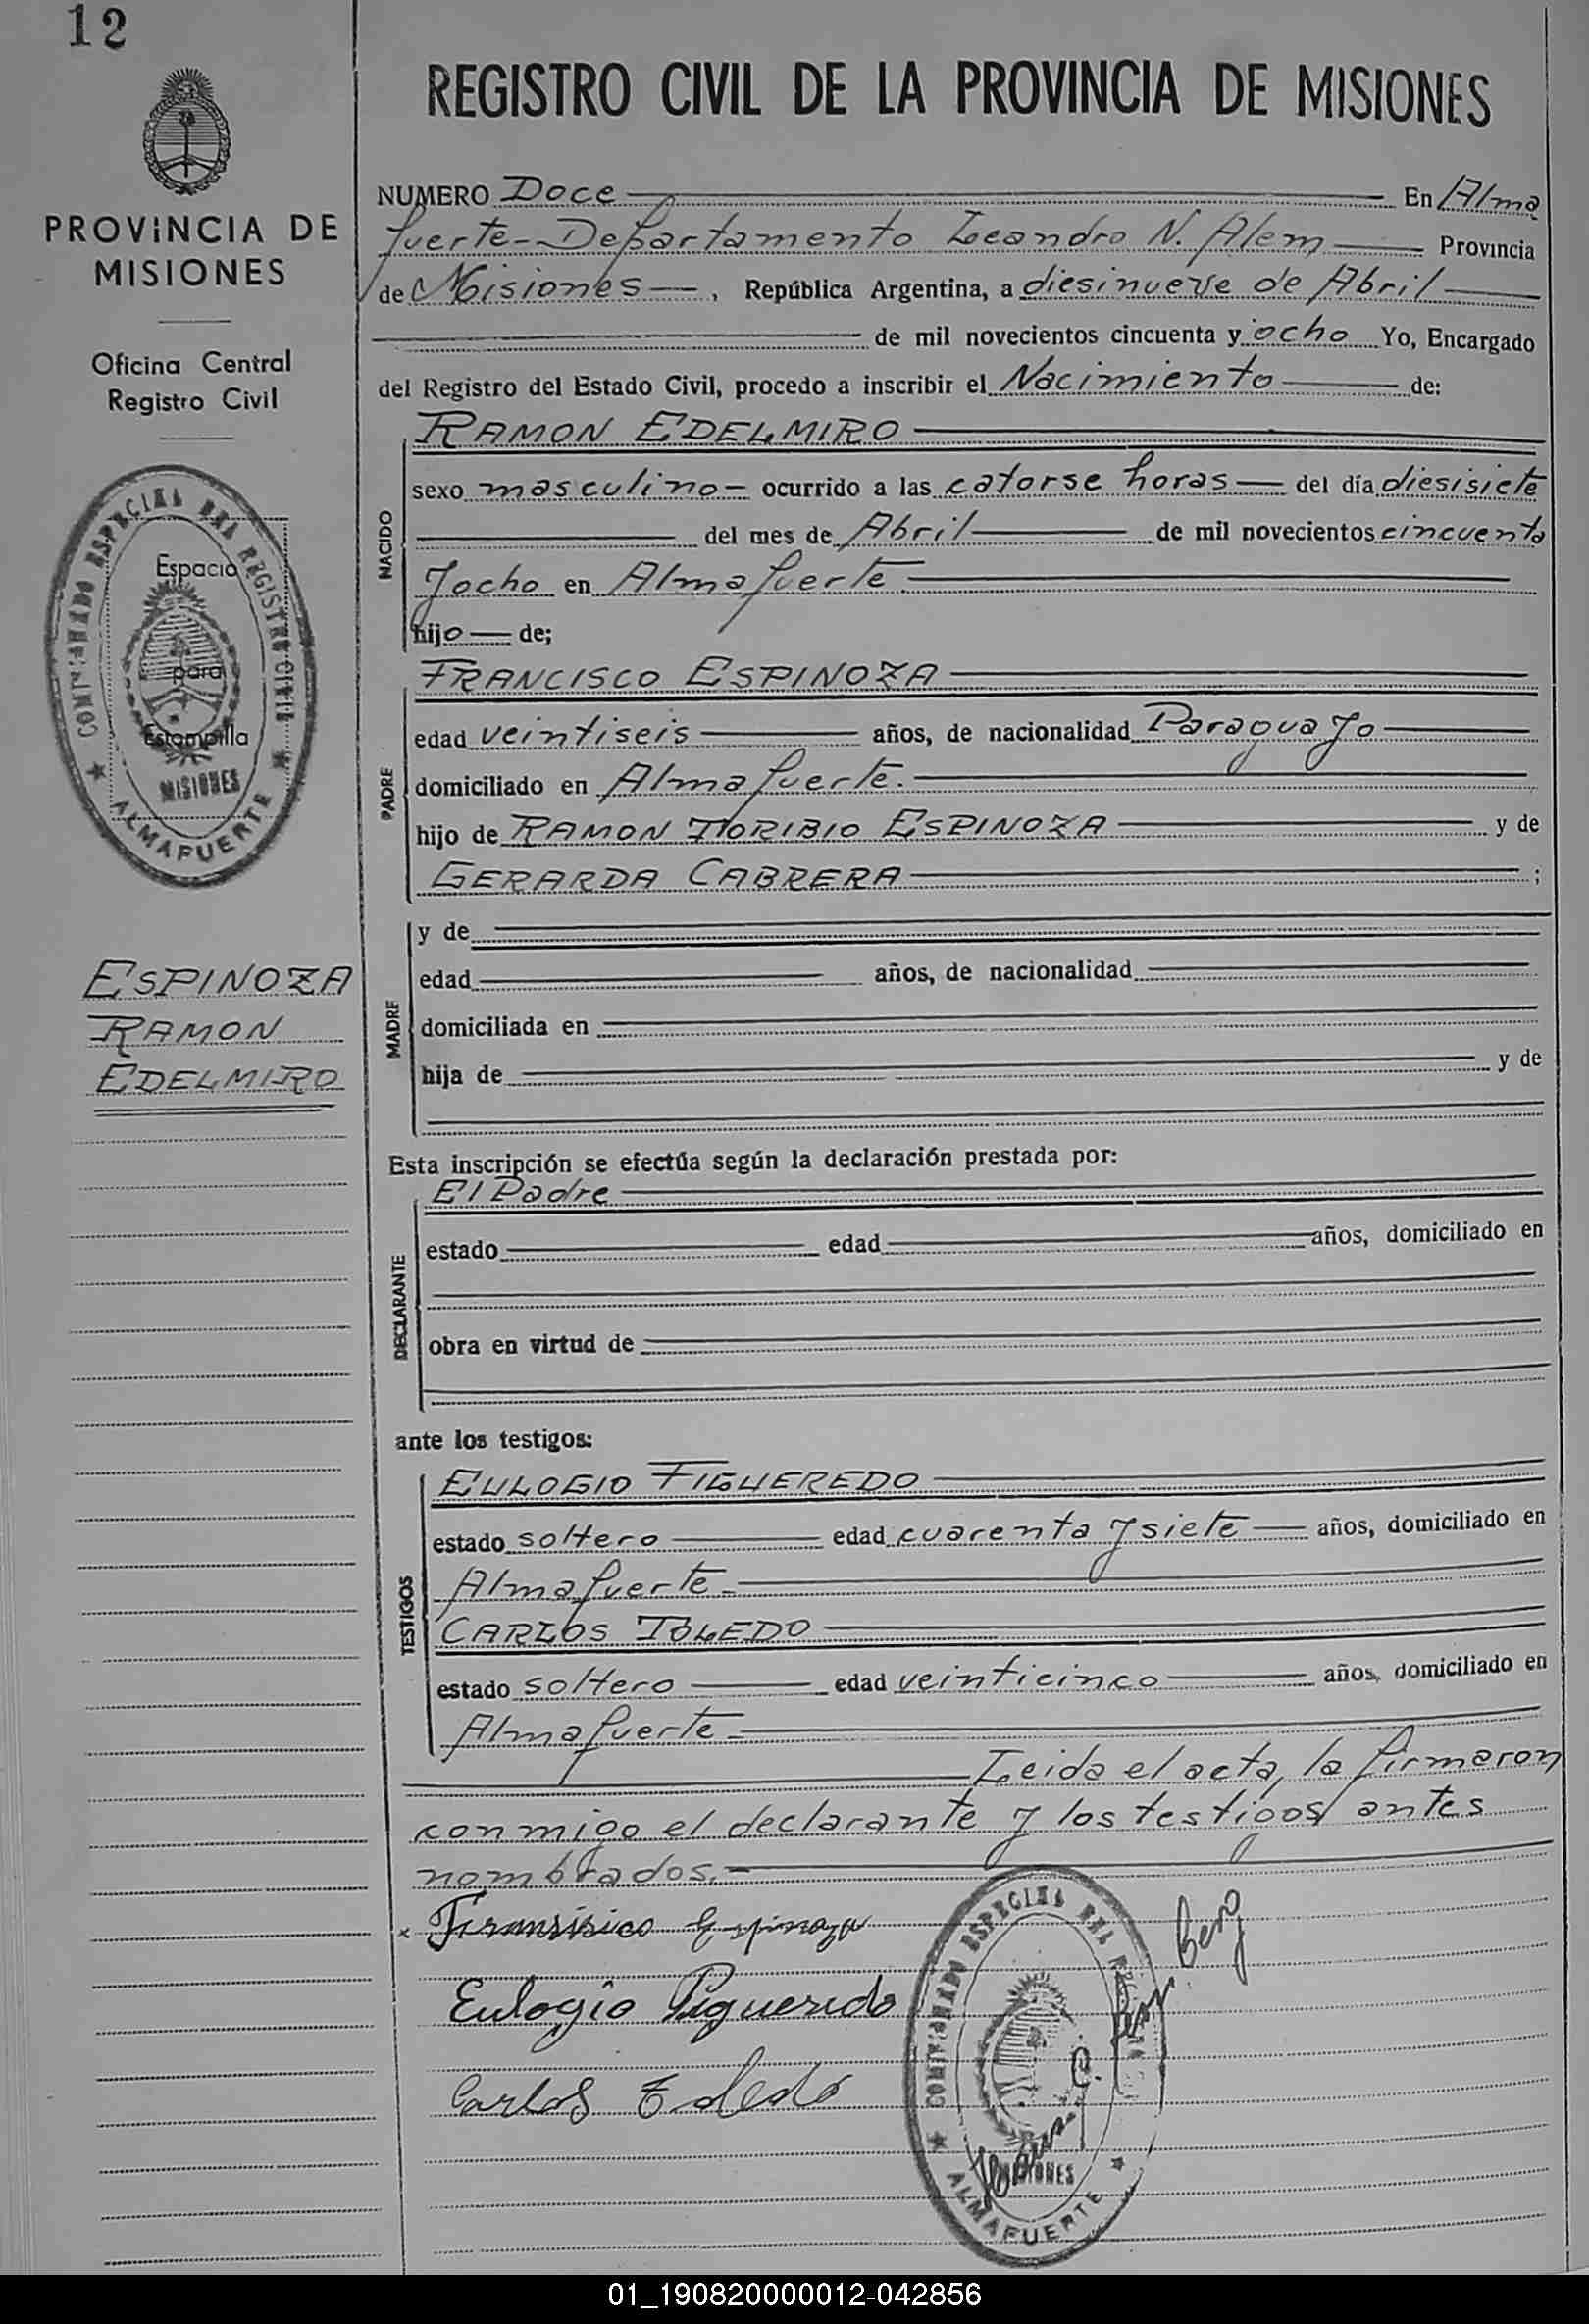 12
REGISTRO CIVIL DE LA PROVINCIA DE MISIONES
PROVINCIA DE
MISIONES
Oficina Central
Registro Civil
COMISARIADO ESPECIAL DEL REGISTRO CIVIL
Espacio
para
Estampilla
MISIONES
ALMAFUERTE
ESPINOZA
RAMON
EDELMIRO
NUMERO Doce En Alma
fuerte - Departamento Leandro N. Alem Provincia
de Misiones —, República Argentina, a diesinueve de Abril
de mil novecientos cincuenta y ocho Yo, Encargado
del Registro del Estado Civil, procedo a inscribir el Nacimiento de:
NACIDO
RAMON EDELMIRO
sexo masculino - ocurrido a las catorse horas — del día diesisiete
del mes de Abril de mil novecientos cincuenta
y ocho en Almafuerte.
hijo — de;
PADRE
FRANCISCO ESPINOZA
edad veintiseis años, de nacionalidad Paraguayo
domiciliado en Almafuerte.
hijo de RAMON TORIBIO ESPINOZA y de
GERARDA CABRERA ;
MADRE
y de
edad años, de nacionalidad
domiciliada en
hija de y de
Esta inscripción se efectúa según la declaración prestada por:
DECLARANTE
El Padre
estado edad años, domiciliado en
obra en virtud de
ante los testigos:
TESTIGOS
EULOGIO FIGUEREDO
estado soltero edad cuarenta y siete años, domiciliado en
Almafuerte.
CARLOS TOLEDO
estado soltero edad veinticinco años, domiciliado en
Almafuerte.
Leida el acta, la firmaron
conmigo el declarante y los testigos antes
nombrados.-
x Fransisico Espinoza
Eulogio Figueredo
Carlos Toledo
ESPECIAL DEL
MISIONES
ALMAFUERTE
01_190820000012-042856